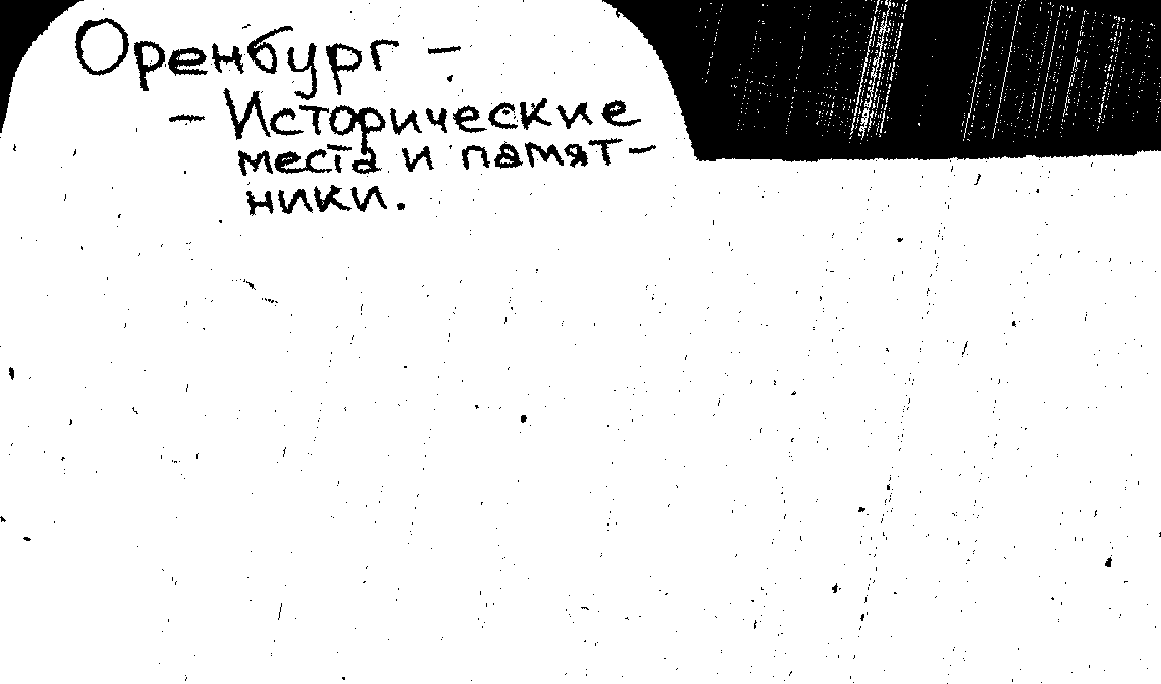 Оренбург –
– Исторические
места и памят–
ники.